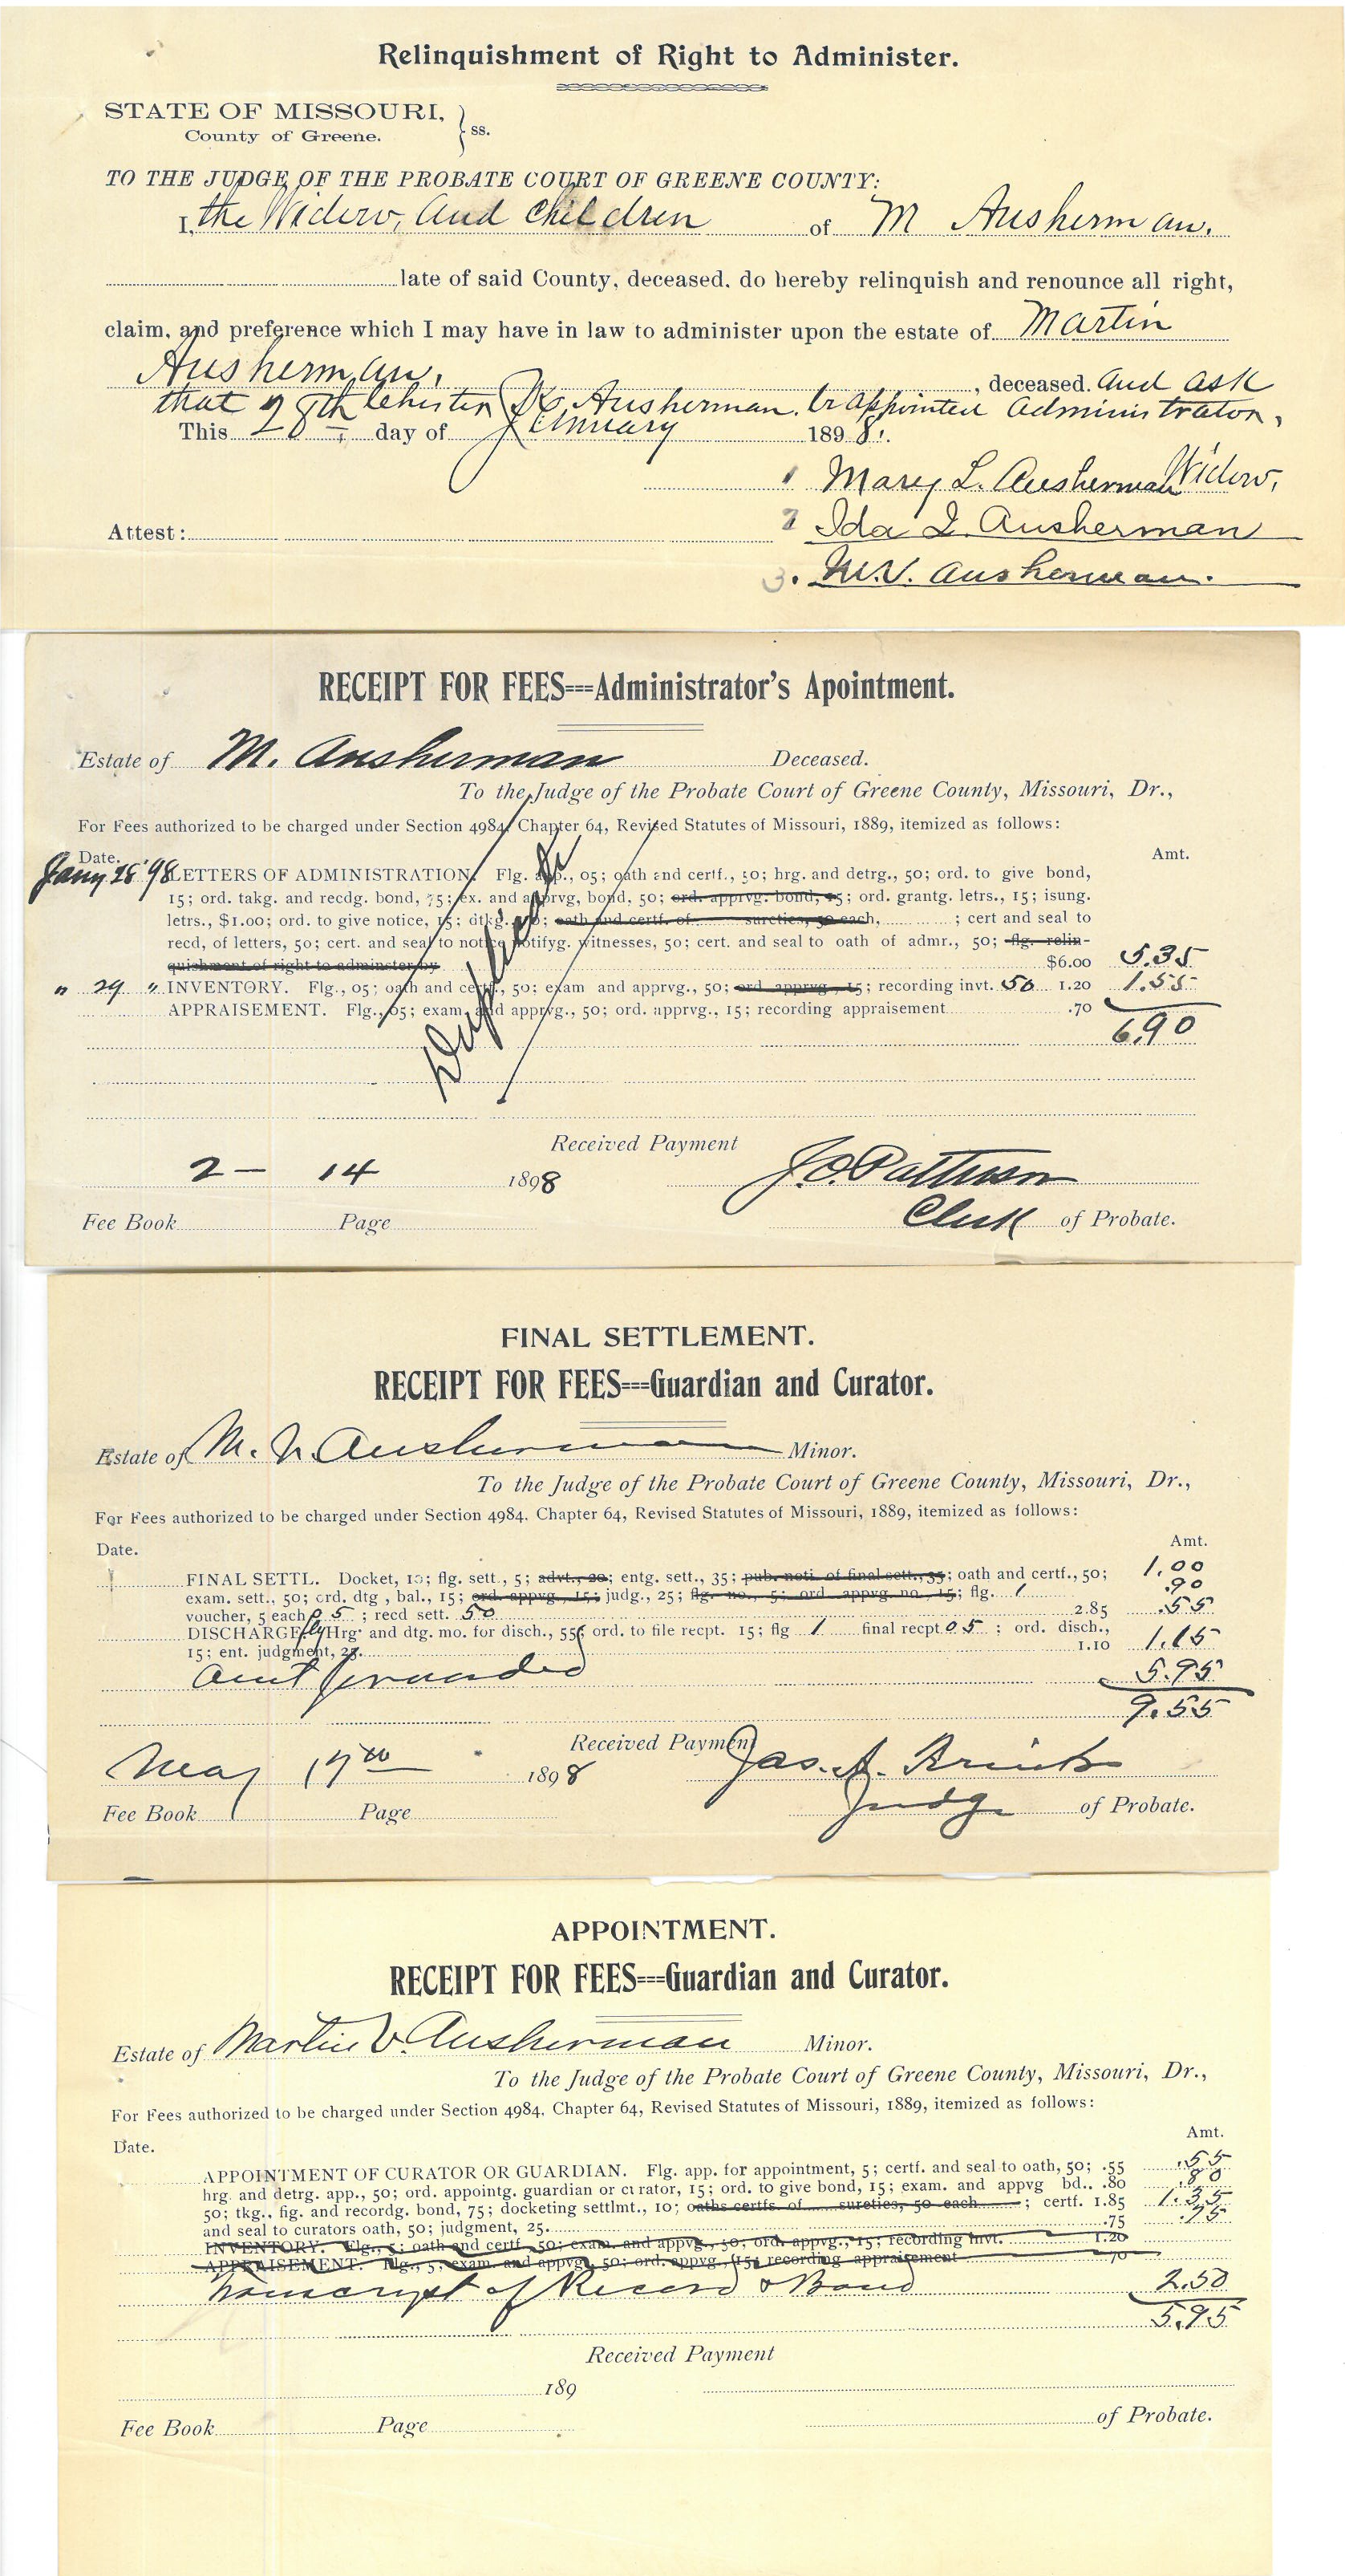 Relinquishment of Right to Administer.
STATE OF MISSOURI,
County of Greene. } ss.
TO THE JUDGE OF THE PROBATE COURT OF GREENE COUNTY:
I, the Widow, and children of M Ausherman.
late of said County, deceased, do hereby relinquish and renounce all right,
claim, and preference which I may have in law to administer upon the estate of Martin
Ausherman, , deceased. and ask
that Ausherman. be appointed administrator,
This 28th day of January 1898.
1 Mary L. Ausherman Widow,
Attest: 2 Ida I. Ausherman
3. M.V. Ausherman.
RECEIPT FOR FEES---Administrator's Apointment.
Estate of M. Ausherman Deceased.
To the Judge of the Probate Court of Greene County, Missouri, Dr.,
For Fees authorized to be charged under Section 4984, Chapter 64, Revised Statutes of Missouri, 1889, itemized as follows:
Date. Amt.
Jany 28 '98 LETTERS OF ADMINISTRATION. Flg. app., 05; oath and certf., 50; hrg. and detrg., 50; ord. to give bond,
15; ord. takg. and recdg. bond, 75; ex. and apprvg, bond, 50; ord. apprvg. bond, 15; ord. grantg. letrs., 15; isung.
letrs., $1.00; ord. to give notice, 15; dtkg. ; oath and certf. of sureties, 50 each, ; cert and seal to
recd, of letters, 50; cert. and seal to notice notifyg. witnesses, 50; cert. and seal to oath of admr., 50; flg. relin-
quishment of right to adminster by $6.00 5.35
" 29 " INVENTORY. Flg., 05; oath and certf., 50; exam and apprvg., 50; ord. apprvg., 15; recording invt. 50 1.20 1.55
APPRAISEMENT. Flg., 05; exam. and apprvg., 50; ord. apprvg., 15; recording appraisement .70
6.90
Duplicate
Received Payment
2 - 14 1898 J.O. Patterson
Fee Book Page Clerk of Probate.
FINAL SETTLEMENT.
RECEIPT FOR FEES---Guardian and Curator.
Estate of M. V. Ausherman Minor.
To the Judge of the Probate Court of Greene County, Missouri, Dr.,
For Fees authorized to be charged under Section 4984, Chapter 64, Revised Statutes of Missouri, 1889, itemized as follows:
Date. Amt.
FINAL SETTL. Docket, 10; flg. sett., 5; advt., 20; entg. sett., 35; pub. noti. of final sett., 35; oath and certf., 50; 1.00
exam. sett., 50; ord. dtg , bal., 15; ord. appvg., 15; judg., 25; flg. no., 5; ord. appvg. no., 15; flg. 1 .90
voucher, 5 each 05 ; recd sett. 50 2.85 .55
DISCHARGE flg Hrg. and dtg. mo. for disch., 55; ord. to file recpt. 15; flg 1 final recpt 05 ; ord. disch.,
15; ent. judgment, 25. 1.10 1.15
Amt forwarded 5.95
9.55
Received Payment
May 17th 1898 Jas. A.
Fee Book Page Judge of Probate.
APPOINTMENT.
RECEIPT FOR FEES---Guardian and Curator.
Estate of Martin V. Ausherman Minor.
To the Judge of the Probate Court of Greene County, Missouri, Dr.,
For Fees authorized to be charged under Section 4984, Chapter 64, Revised Statutes of Missouri, 1889, itemized as follows:
Date. Amt.
APPOINTMENT OF CURATOR OR GUARDIAN. Flg. app. for appointment, 5; certf. and seal to oath, 50; .55 .55
hrg. and detrg. app., 50; ord. appointg. guardian or curator, 15; ord. to give bond, 15; exam. and appvg bd., .80 .80
50; tkg., fig. and recordg. bond, 75; docketing settlmt., 10; oaths certfs. of sureties, 50 each ; certf. 1.85 1.35
and seal to curators oath, 50; judgment, 25. .75 .75
INVENTORY. Flg., 5; oath and certf., 50; exam. and appvg., 50; ord. appvg., 15; recording invt. 1.20
APPRAISEMENT. Flg., 5; exam. and appvg., 50; ord. appvg., 15; recording appraisement .70
Transcript of Record & Bond 2.50
5.95
Received Payment
189
Fee Book Page of Probate.